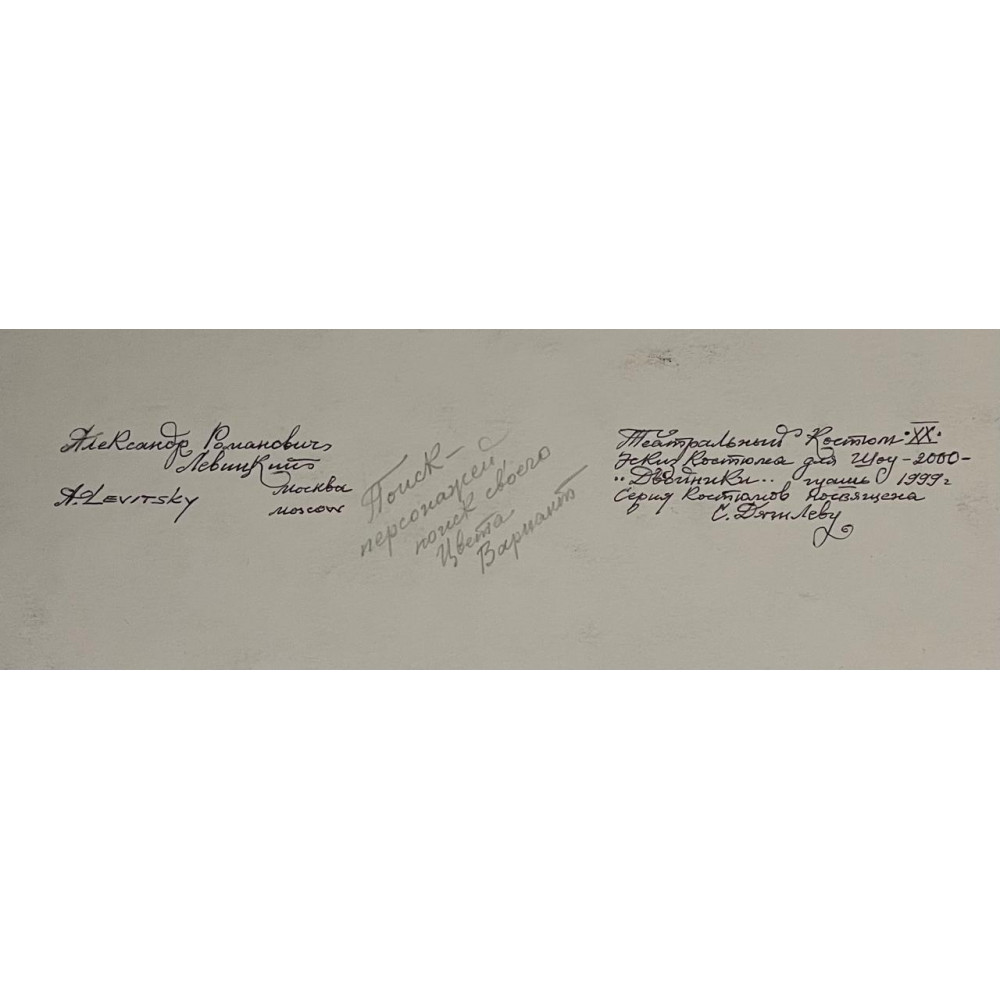 Александр Романович
Левицкий
Москва
A. LEVITSKY
MOSCOW
Поиск -
персонажей,
поиск своего
Цвета
Вариант
Театральный Костюм "XX"
Эскиз Костюма для Шоу - 2000 -
"Двойники" гуашь 1999 г
Серия Костюмов Посвящена
С. Дягилеву